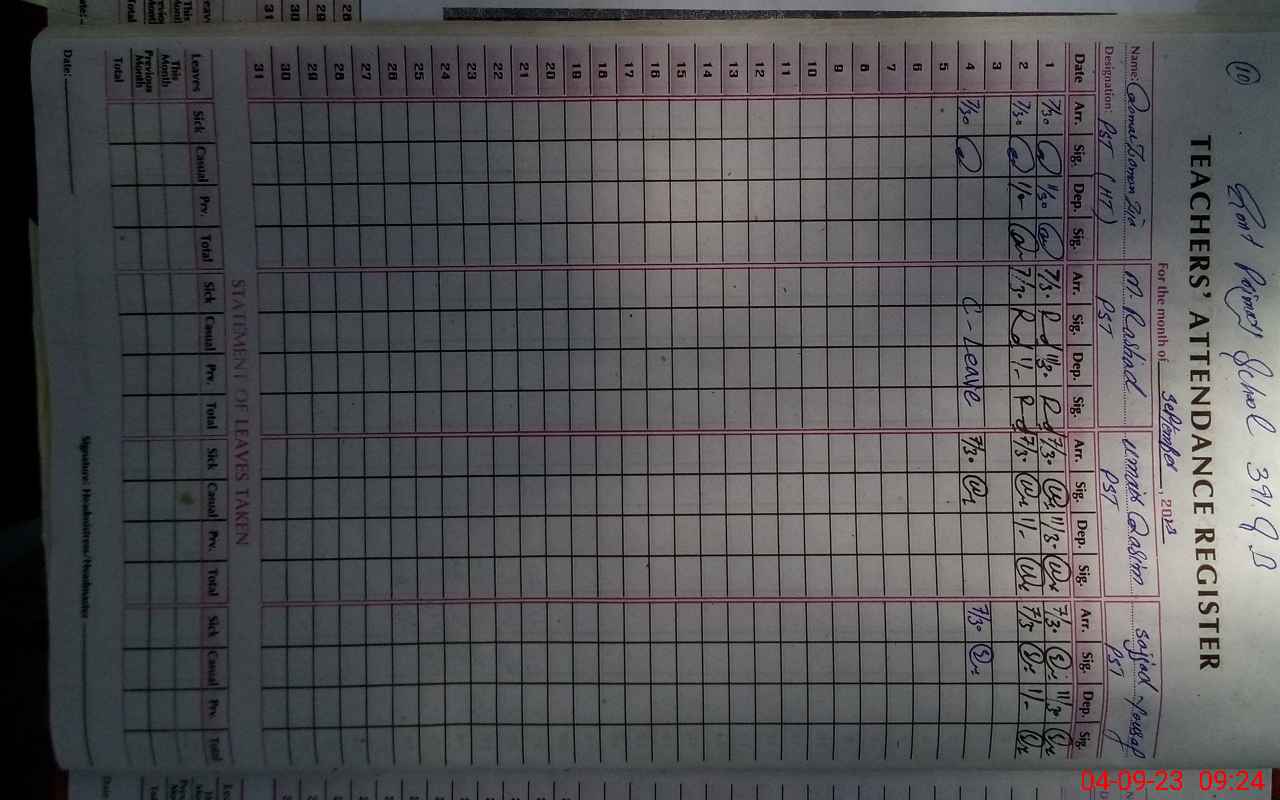 10
Govt Primary School 391 GB
TEACHERS' ATTENDANCE REGISTER
For the month of September, 2023
Name: Qamar Zaman Zia M. Rashad Umair Qasim Sajjad Yousaf
Designation: PST (HT) PST PST PST
Date Arr. Sig. Dep. Sig. Arr. Sig. Dep. Sig. Arr. Sig. Dep. Sig. Arr. Sig. Dep. Sig.
1 7/30 11/30 7/30 Rd 11/30 Rd 7/30 11/30 7/30 11/30
2 7/30 11/- 7/30 Rd 11/- Rd 7/30 11/- 7/30 11/-
3
4 7/30 C-Leave 7/30 7/30
5
6
7
8
9
10
11
12
13
14
15
16
17
18
19
20
21
22
23
24
25
26
27
28
29
30
31
STATEMENT OF LEAVES TAKEN
Leaves Sick Casual Prv. Total Sick Casual Prv. Total Sick Casual Prv. Total Sick Casual Prv. Total
This Month
Previous Month
Total
Date: Signature: Headmistress/Headmaster
04-09-23 09:24